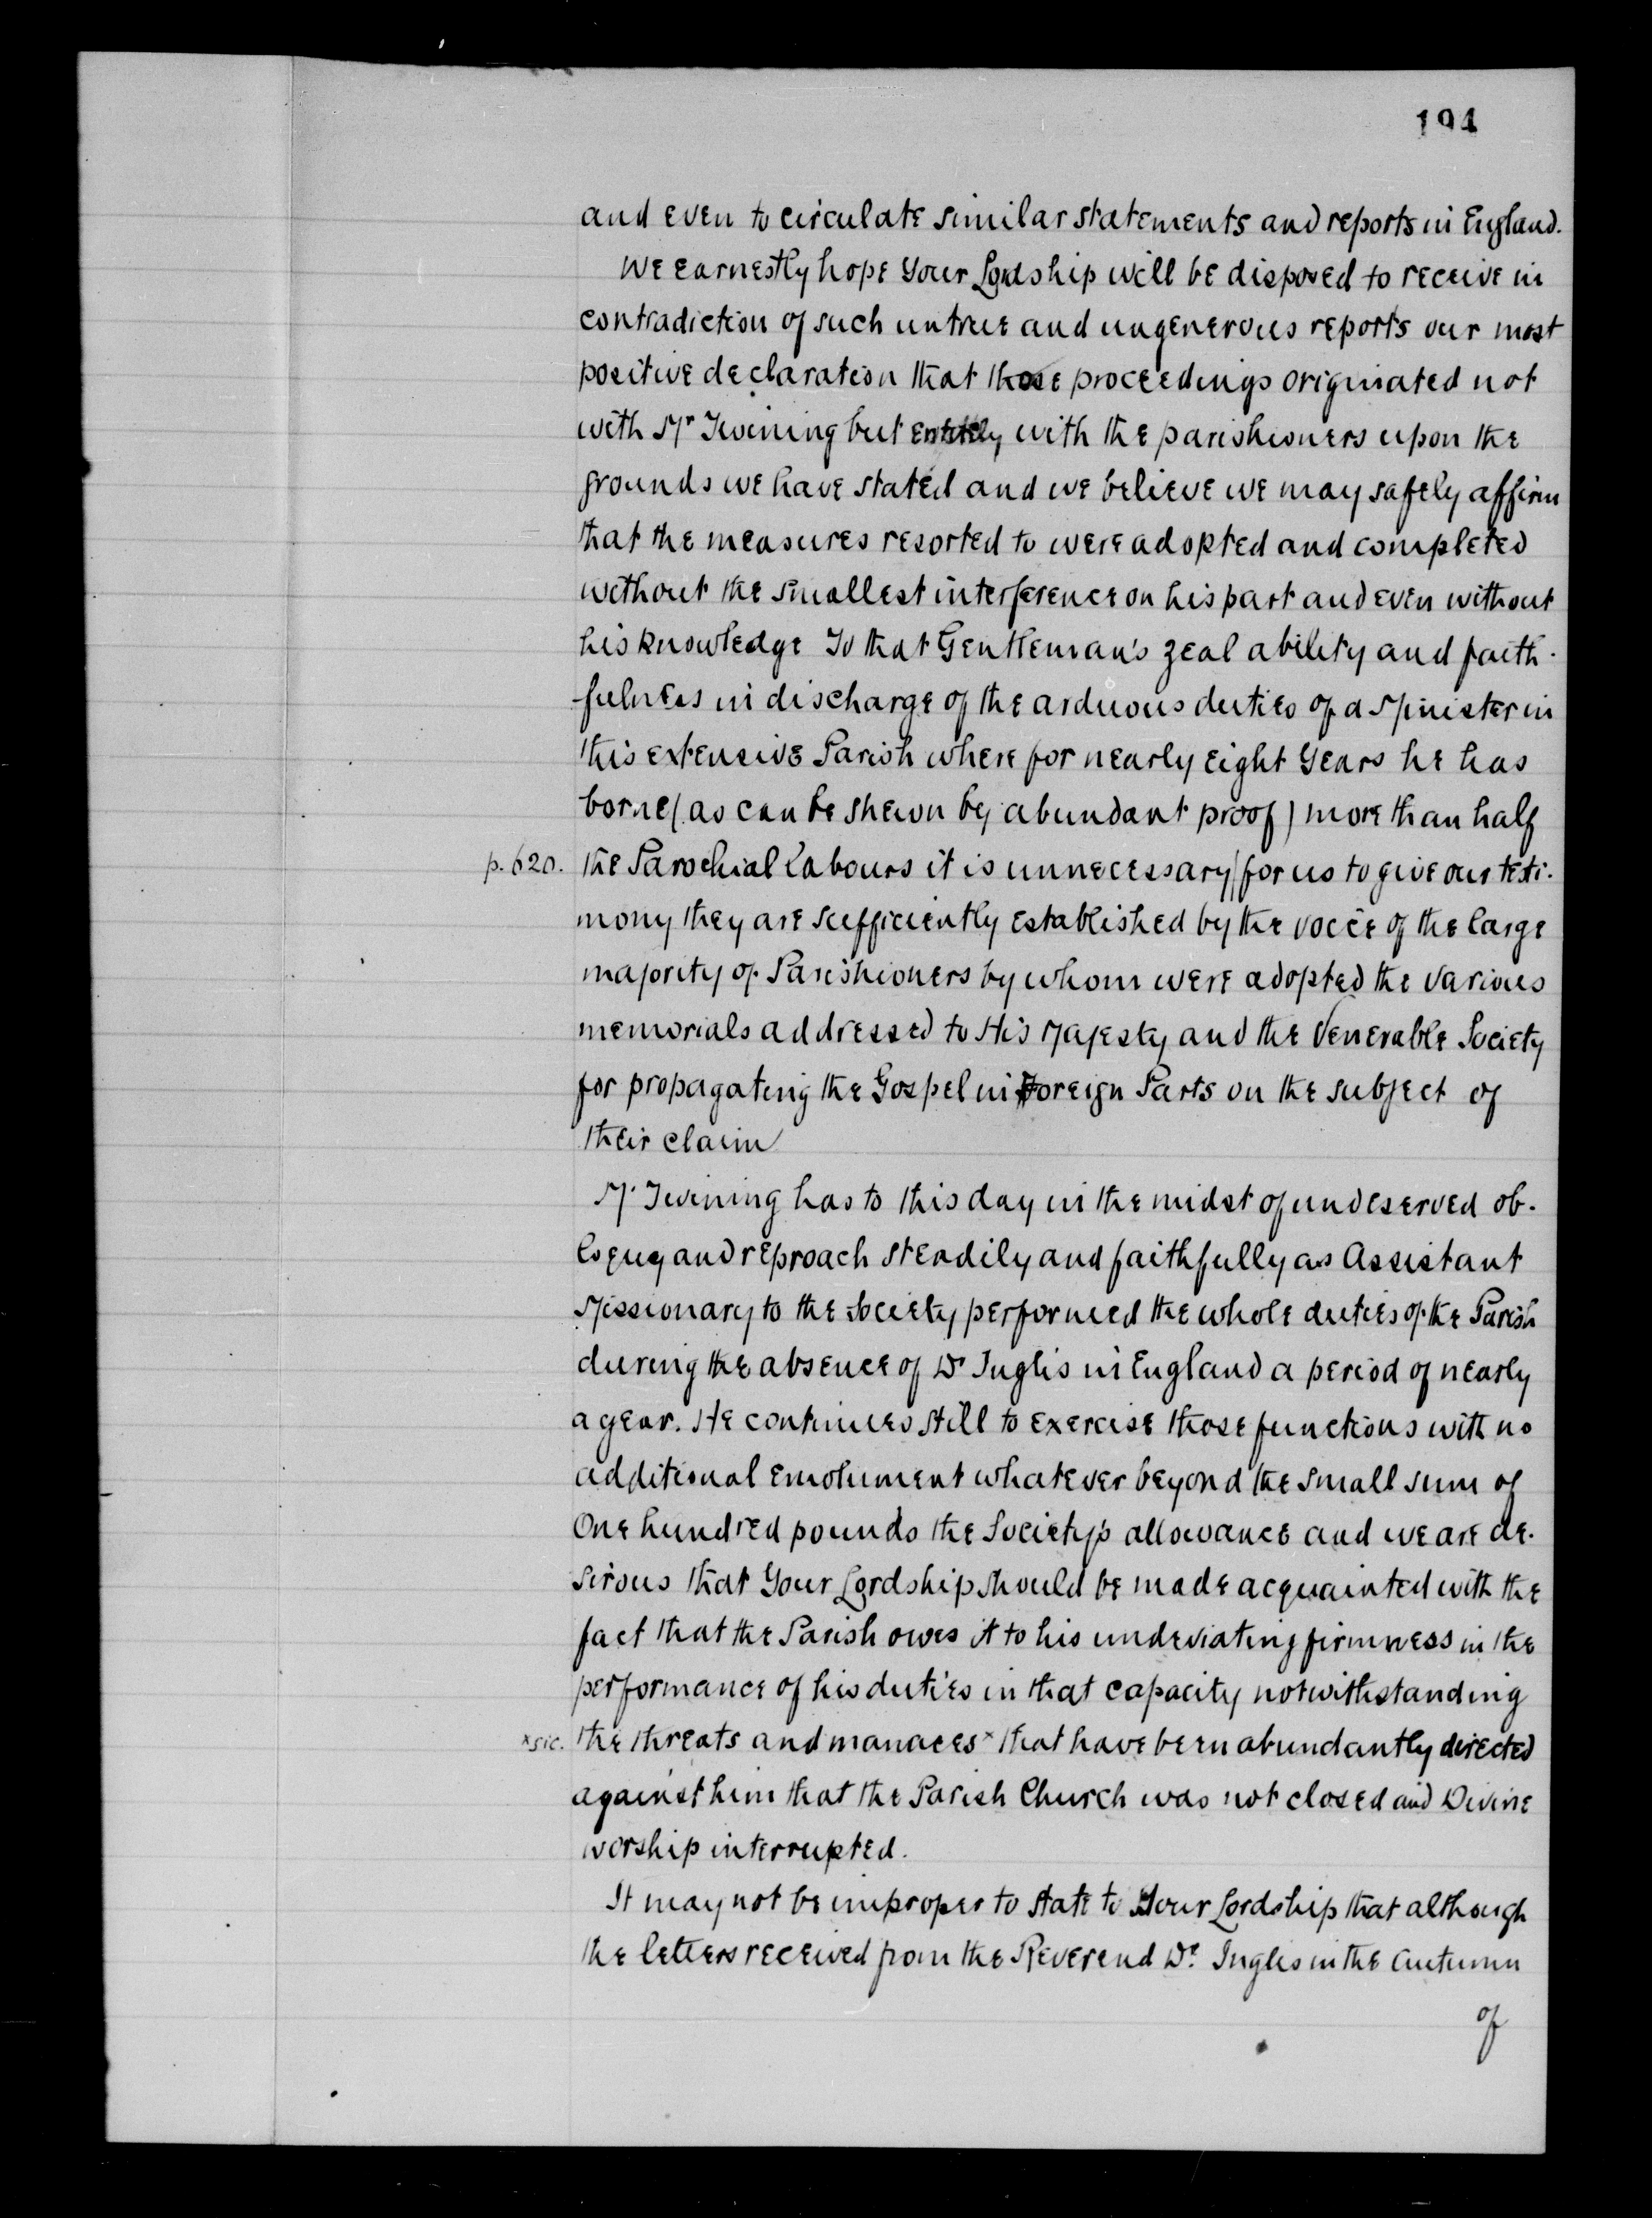 194
and even to circulate similar statements and reports in England.
We earnestly hope Your Lordship will be disposed to receive in
contradiction of such untrue and ungenerous reports our most
positive declaration that those proceedings originated not
with Mr Twining but entirely with the parishioners upon the
grounds we have stated and we believe we may safely affirm
that the measures resorted to were adopted and completed
without the smallest interference on his part and even without
his knowledge To that Gentleman's zeal ability and faith-
fulness in discharge of the arduous duties of a Minister in
this extensive Parish where for nearly eight Years he has
borne (as can be shewn by abundant proof) more than half
p. 620. the Parochial Labours it is unnecessary || for us to give our testi-
mony they are sufficiently established by the voice of the large
majority of Parishioners by whom were adopted the various
memorials addressed to His Majesty and the Venerable Society
for propagating the Gospel in Foreign Parts on the subject of
their claim
Mr Twining has to this day in the midst of undeserved ob-
loquy and reproach steadily and faithfully as Assistant
Missionary to the Society performed the whole duties of the Parish
during the absence of Dr Inglis in England a period of nearly
a year. He continues still to exercise those functions with no
additional emolument whatever beyond the small sum of
One hundred pounds the Society's allowance and we are de-
sirous that Your Lordship should be made acquainted with the
fact that the Parish owes it to his undeviating firmness in the
performance of his duties in that capacity notwithstanding
x sic. the threats and manaces x that have been abundantly directed
against him that the Parish Church was not closed and Divine
worship interrupted.
It may not be improper to state to Your Lordship that although
the letters received from the Reverend Dr. Inglis in the Autumn
of